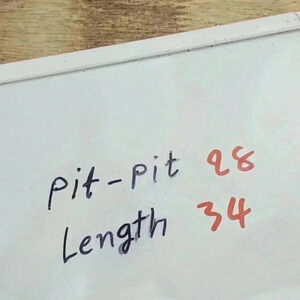 Pit-Pit 28
Length 34